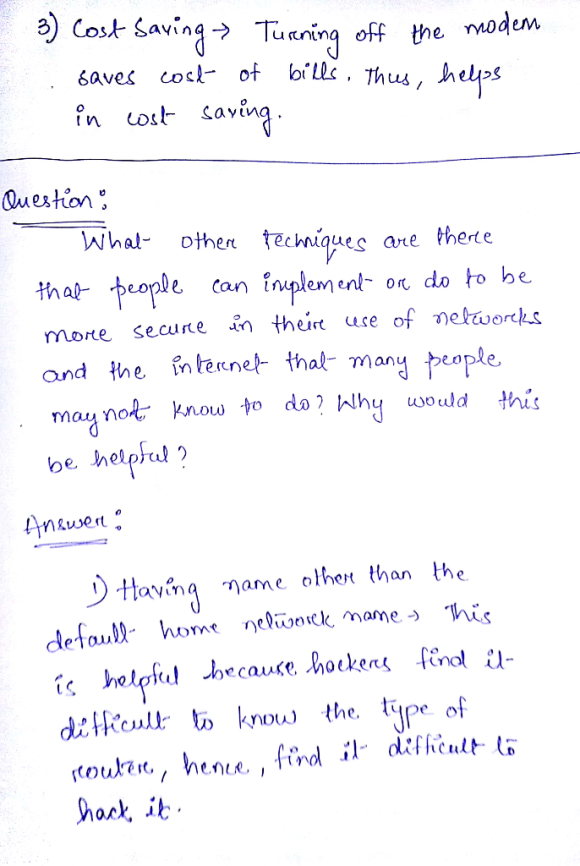 3) Cost Saving → Turning off the modem
saves cost of bills. Thus, helps
in cost saving.
Question :
What other techniques are there
that people can implement or do to be
more secure in their use of networks
and the internet that many people
may not know to do? Why would this
be helpful?
Answer :
1) Having name other than the
default home network name → This
is helpful because hackers find it
difficult to know the type of
router, hence, find it difficult to
hack it.